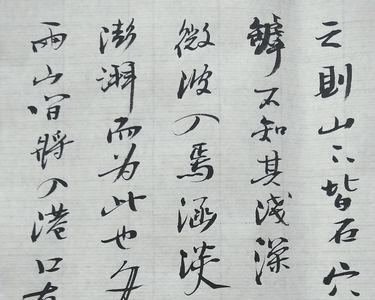 之則山下皆石穴
罅不知其淺深
微波入焉涵淡
澎湃而为此也舟
兩山間將入港口有